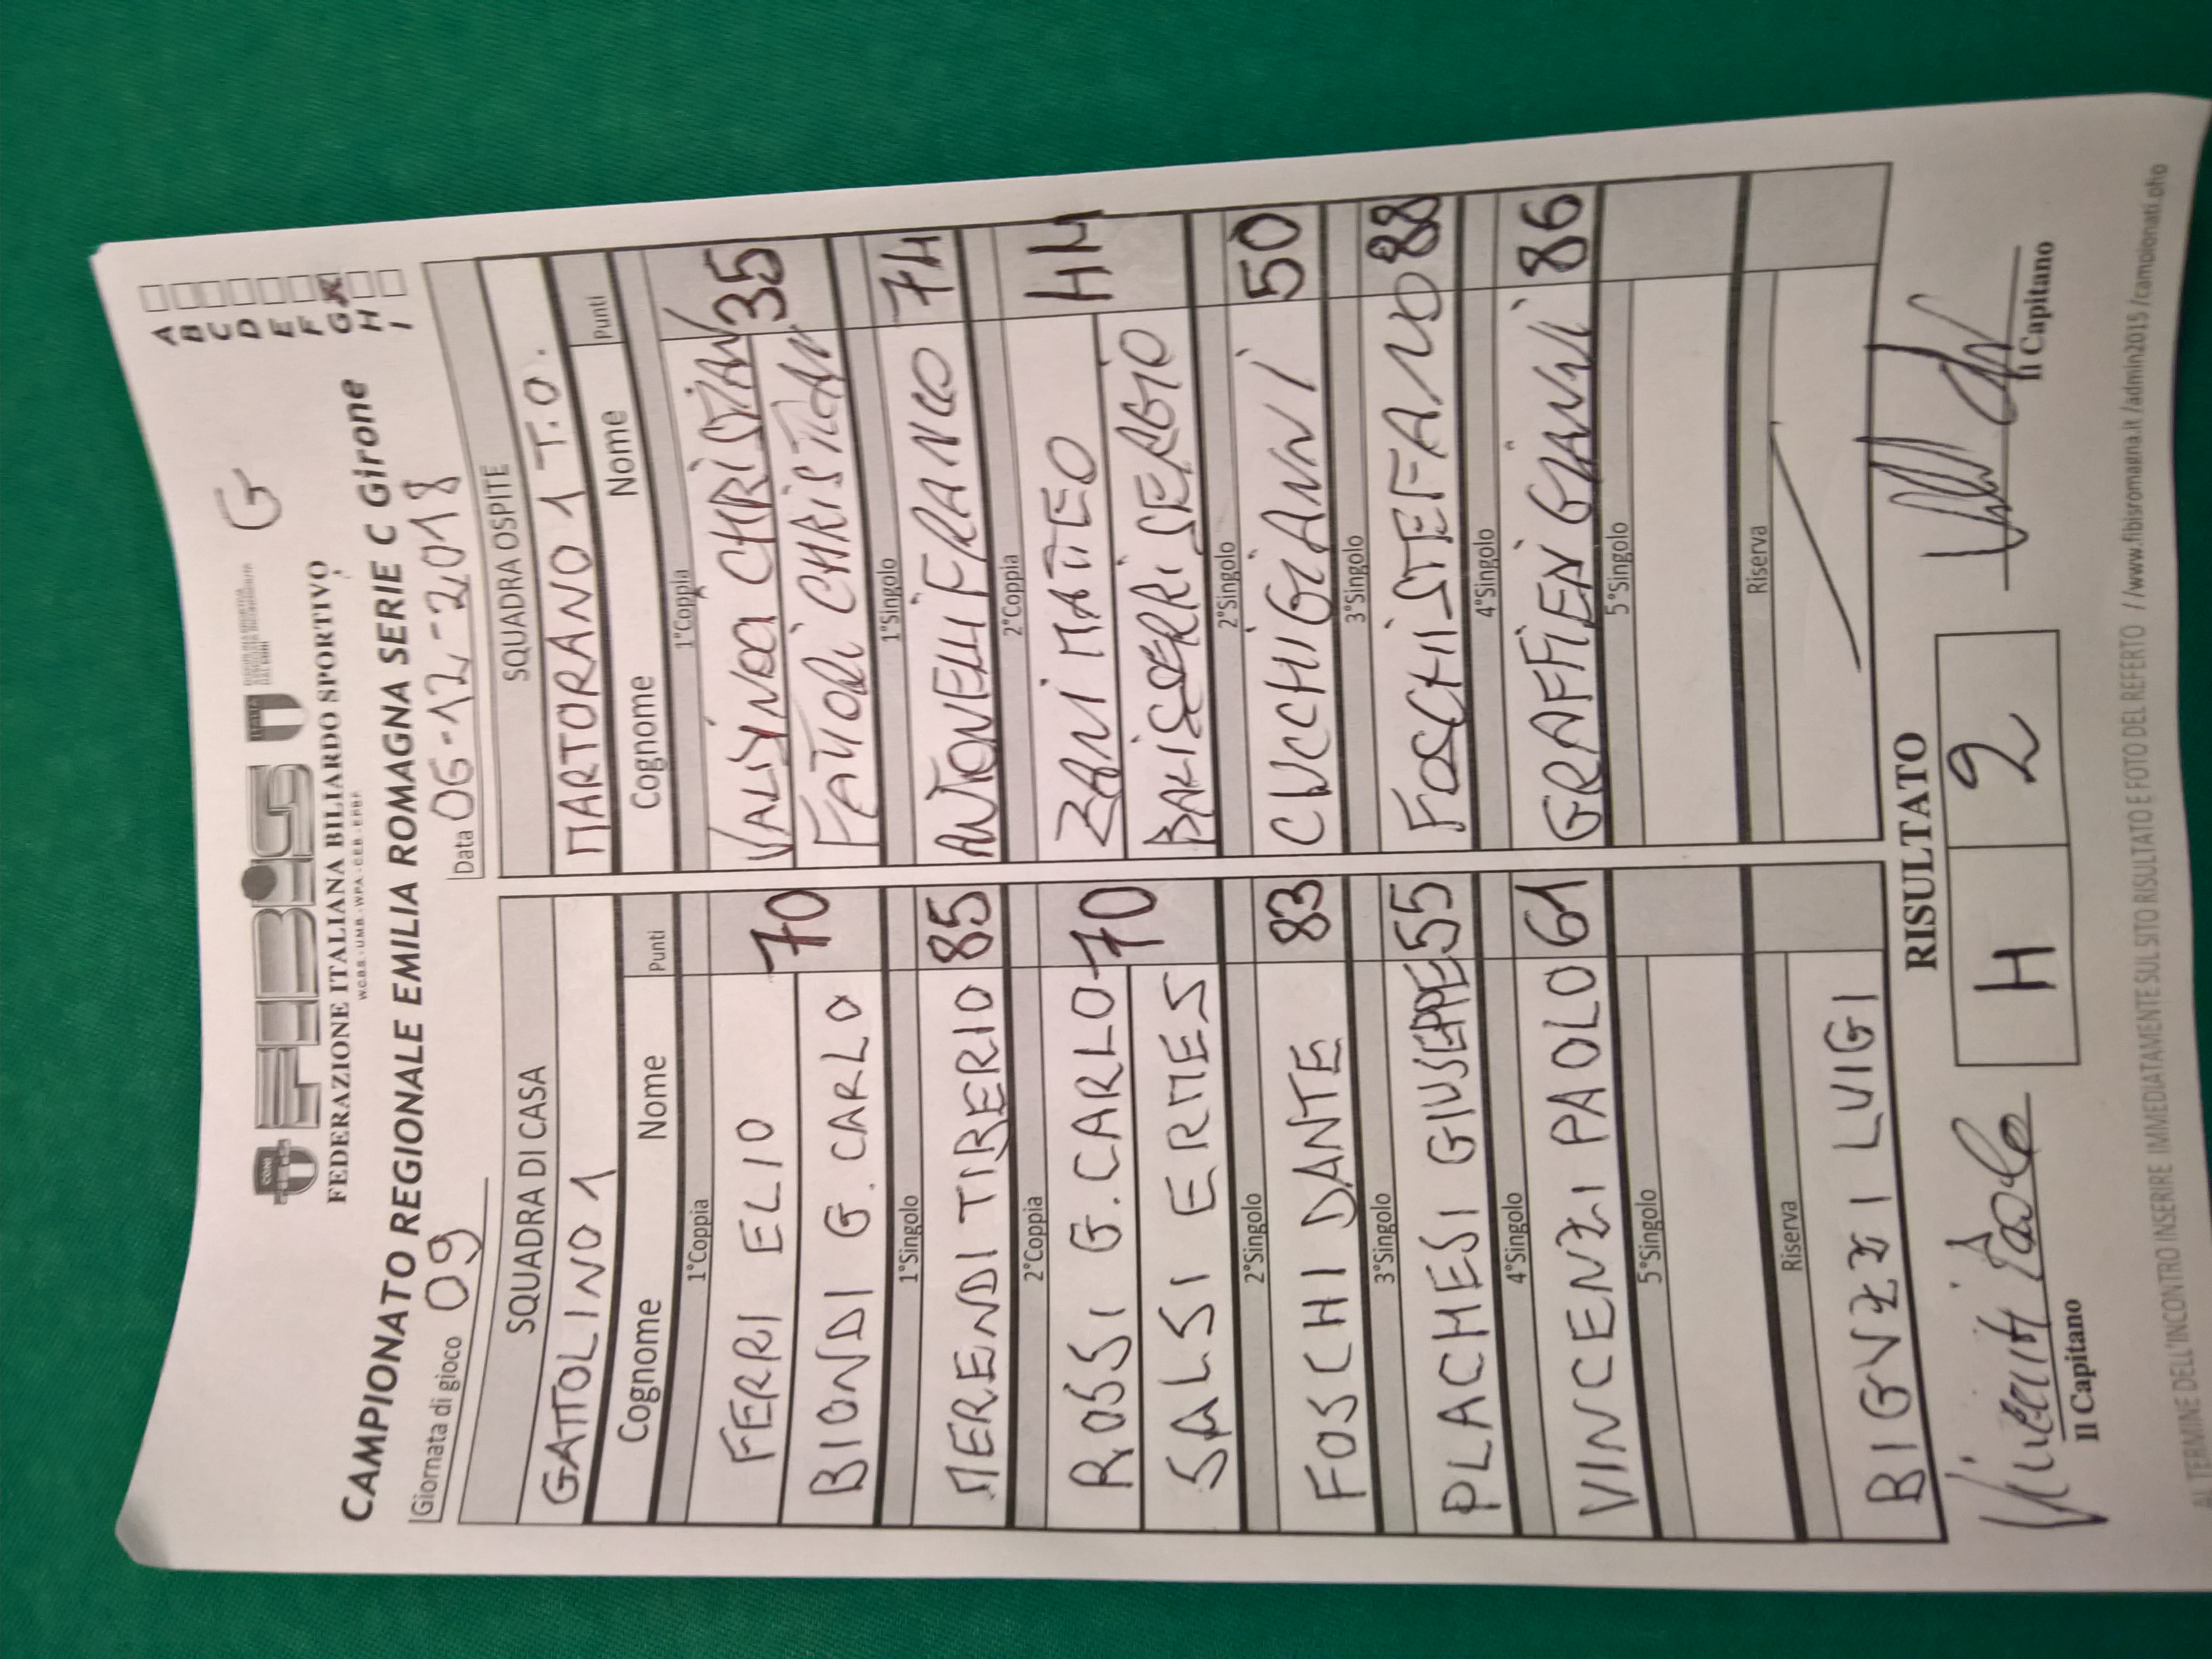 G
FiBiS
FEDERAZIONE ITALIANA BILIARDO SPORTIVO
W.C.B.S. - U.M.B. - W.P.A. - C.E.B. - E.P.B.F.
CAMPIONATO REGIONALE EMILIA ROMAGNA SERIE C Girone
A
B
C
D
E
F
G X
H
I
Giornata di gioco 09
Data 06-12-2018
SQUADRA DI CASA
GATTOLINO 1
Cognome Nome Punti
1°Coppia
FERRI ELIO
BIONDI G. CARLO
70
1°Singolo
MERENDI TIRERIO 85
2°Coppia
ROSSI G. CARLO
SALSI ERMES
70
2°Singolo
FOSCHI DANTE 83
3°Singolo
PLACHESI GIUSEPPE 55
4°Singolo
VINCENZI PAOLO 61
5°Singolo
Riserva
BIGUZZI LUIGI
SQUADRA OSPITE
MARTORANO 1 T.O.
Cognome Nome Punti
1°Coppia
CHRISTIAN
FATTORI CHRISTIAN
35
1°Singolo
ANTONELLI FRANCO 74
2°Coppia
ZANI MATTEO
SERGIO
44
2°Singolo
CUCCHI GIANNI 50
3°Singolo
FOSCHI STEFANO 88
4°Singolo
GRAFFIEDI GIANNI 86
5°Singolo
Riserva
RISULTATO
4 2
Vincenzi Paolo
Il Capitano
Il Capitano
AL TERMINE DELL'INCONTRO INSERIRE IMMEDIATAMENTE SUL SITO RISULTATO E FOTO DEL REFERTO //www.fibisromagna.it /admin2015 /campionati.php